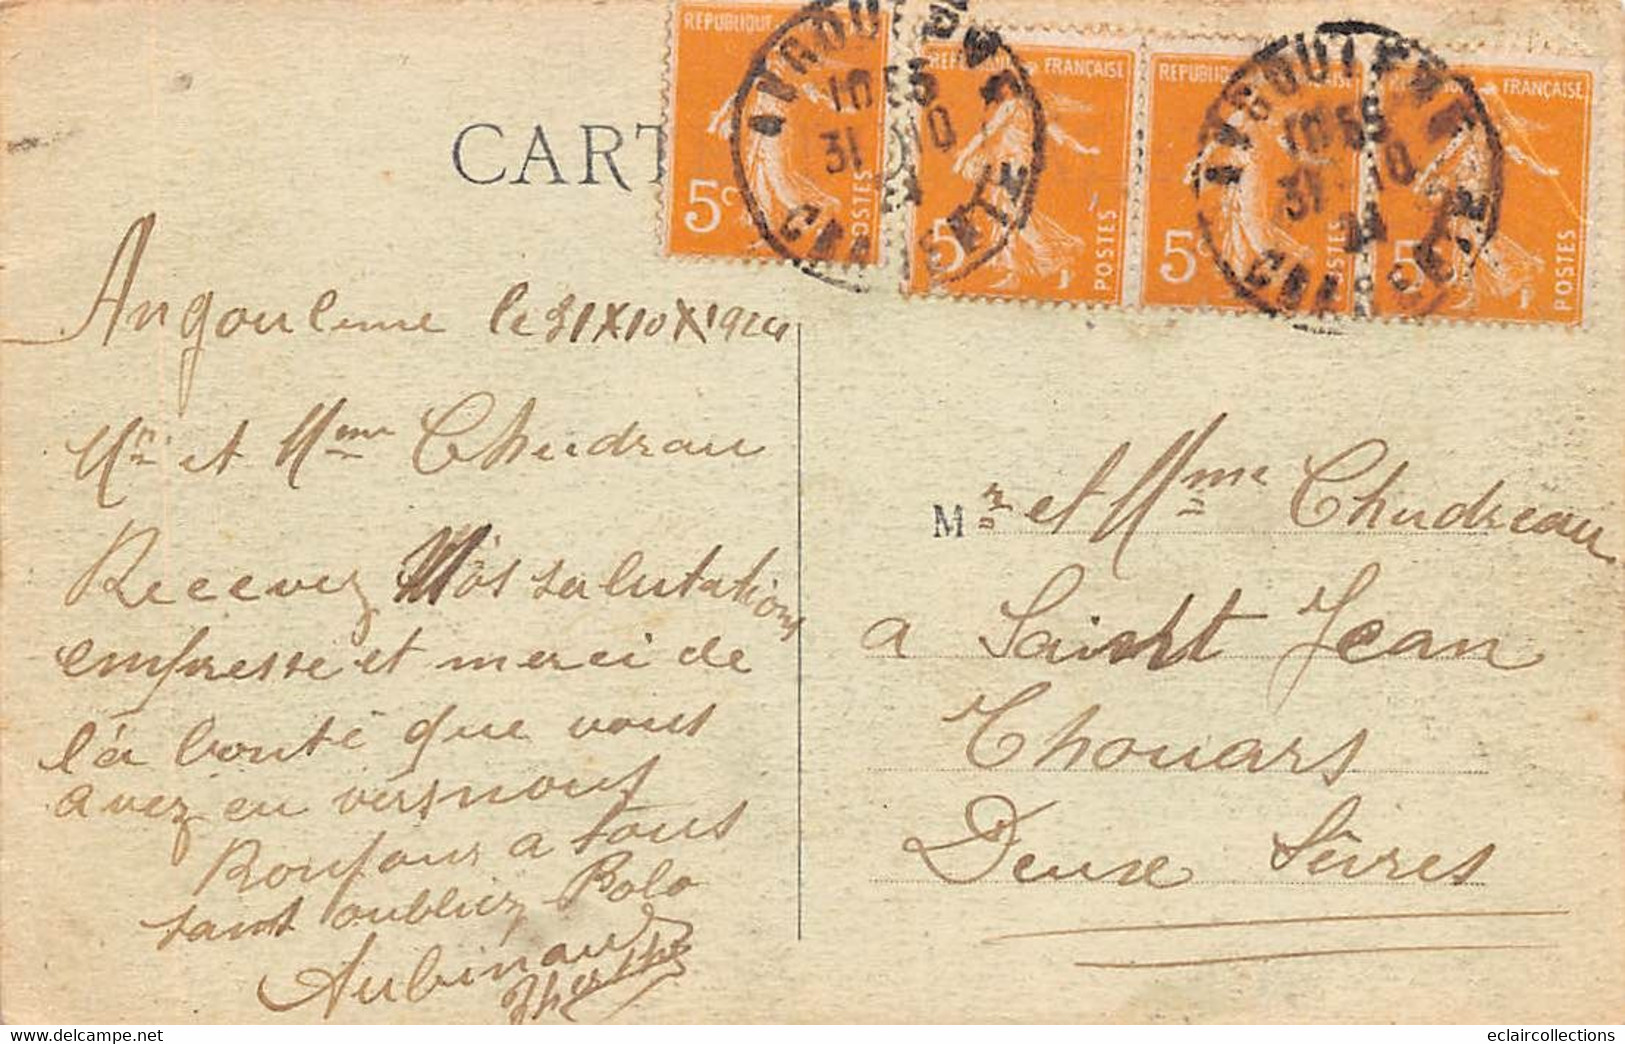 CART
RÉPUBLIQUE
5c
POSTES
RÉPUBLIQUE FRANÇAISE
5
POSTES
RÉPUBLIQUE
5c
FRANÇAISE
5
POSTES
ANGOULEME
10 55
31 10
24
CHARENTE
ANGOULEME
10 55
31 10
24
CHARENTE
Angouleme le 31 X 10 X 1924
Mr et Mme Chudrau
Recevez Nos salutations
empresse et merci de
la bonté que vous
avez eu vers nous
Bonjour a tous
sans oublier Bolo
Aubinaud
Mr et Mme Chudreau
a Saint Jean
Thouars
Deux Sèvres
delcampe.net
eclaircollections